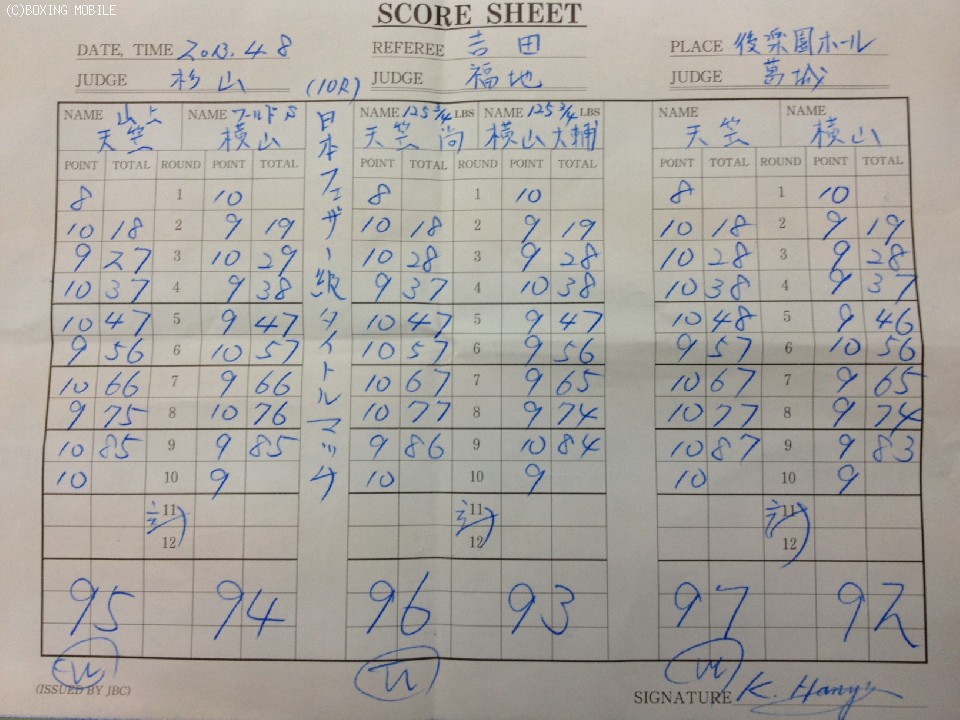 (C)BOXING MOBILE
SCORE SHEET
DATE, TIME 2013. 4. 8 REFEREE 吉田 PLACE 後楽園ホール
JUDGE 杉山 (10R) JUDGE 福地 JUDGE
NAME 山上 NAME ワールドS NAME 125 3/4 LBS NAME 125 3/4 LBS NAME NAME
天笠 横山 天笠 尚 横山大輔 天笠 横山
日本フェザー級タイトルマッチ
POINT TOTAL ROUND POINT TOTAL POINT TOTAL ROUND POINT TOTAL POINT TOTAL ROUND POINT TOTAL
8 1 10 8 1 10 8 1 10
10 18 2 9 19 10 18 2 9 19 10 18 2 9 19
9 27 3 10 29 10 28 3 9 28 10 28 3 9 28
10 37 4 9 38 9 37 4 10 38 10 38 4 9 37
10 47 5 9 47 10 47 5 9 47 10 48 5 9 46
9 56 6 10 57 10 57 6 9 56 9 57 6 10 56
10 66 7 9 66 10 67 7 9 65 10 67 7 9 65
9 75 8 10 76 10 77 8 9 74 10 77 8 9 74
10 85 9 9 85 9 86 9 10 84 10 87 9 9 83
10 10 9 10 10 9 10 10 9
計 11 計 11 計 11
12 12 12
95 94 96 93 97 92
(ISSUED BY JBC) SIGNATURE